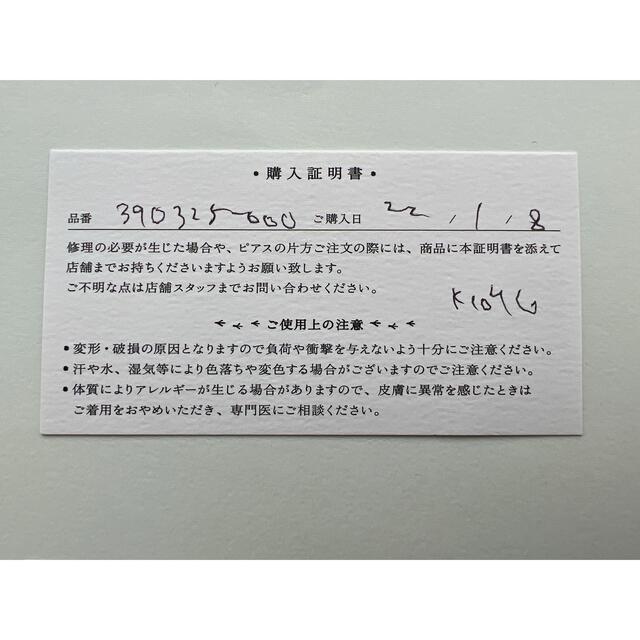 ・購入証明書・
品番 390325-000 ご購入日 22 / 1 / 8
修理の必要が生じた場合や、ピアスの片方ご注文の際には、商品に本証明書を添えて
店舗までお持ちくださいますようお願い致します。
ご不明な点は店舗スタッフまでお問い合わせください。
ご使用上の注意
・変形・破損の原因となりますので負荷や衝撃を与えないよう十分にご注意ください。
・汗や水、湿気等により色落ちや変色する場合がございますのでご注意ください。
・体質によりアレルギーが生じる場合がありますので、皮膚に異常を感じたときは
ご着用をおやめいただき、専門医にご相談ください。